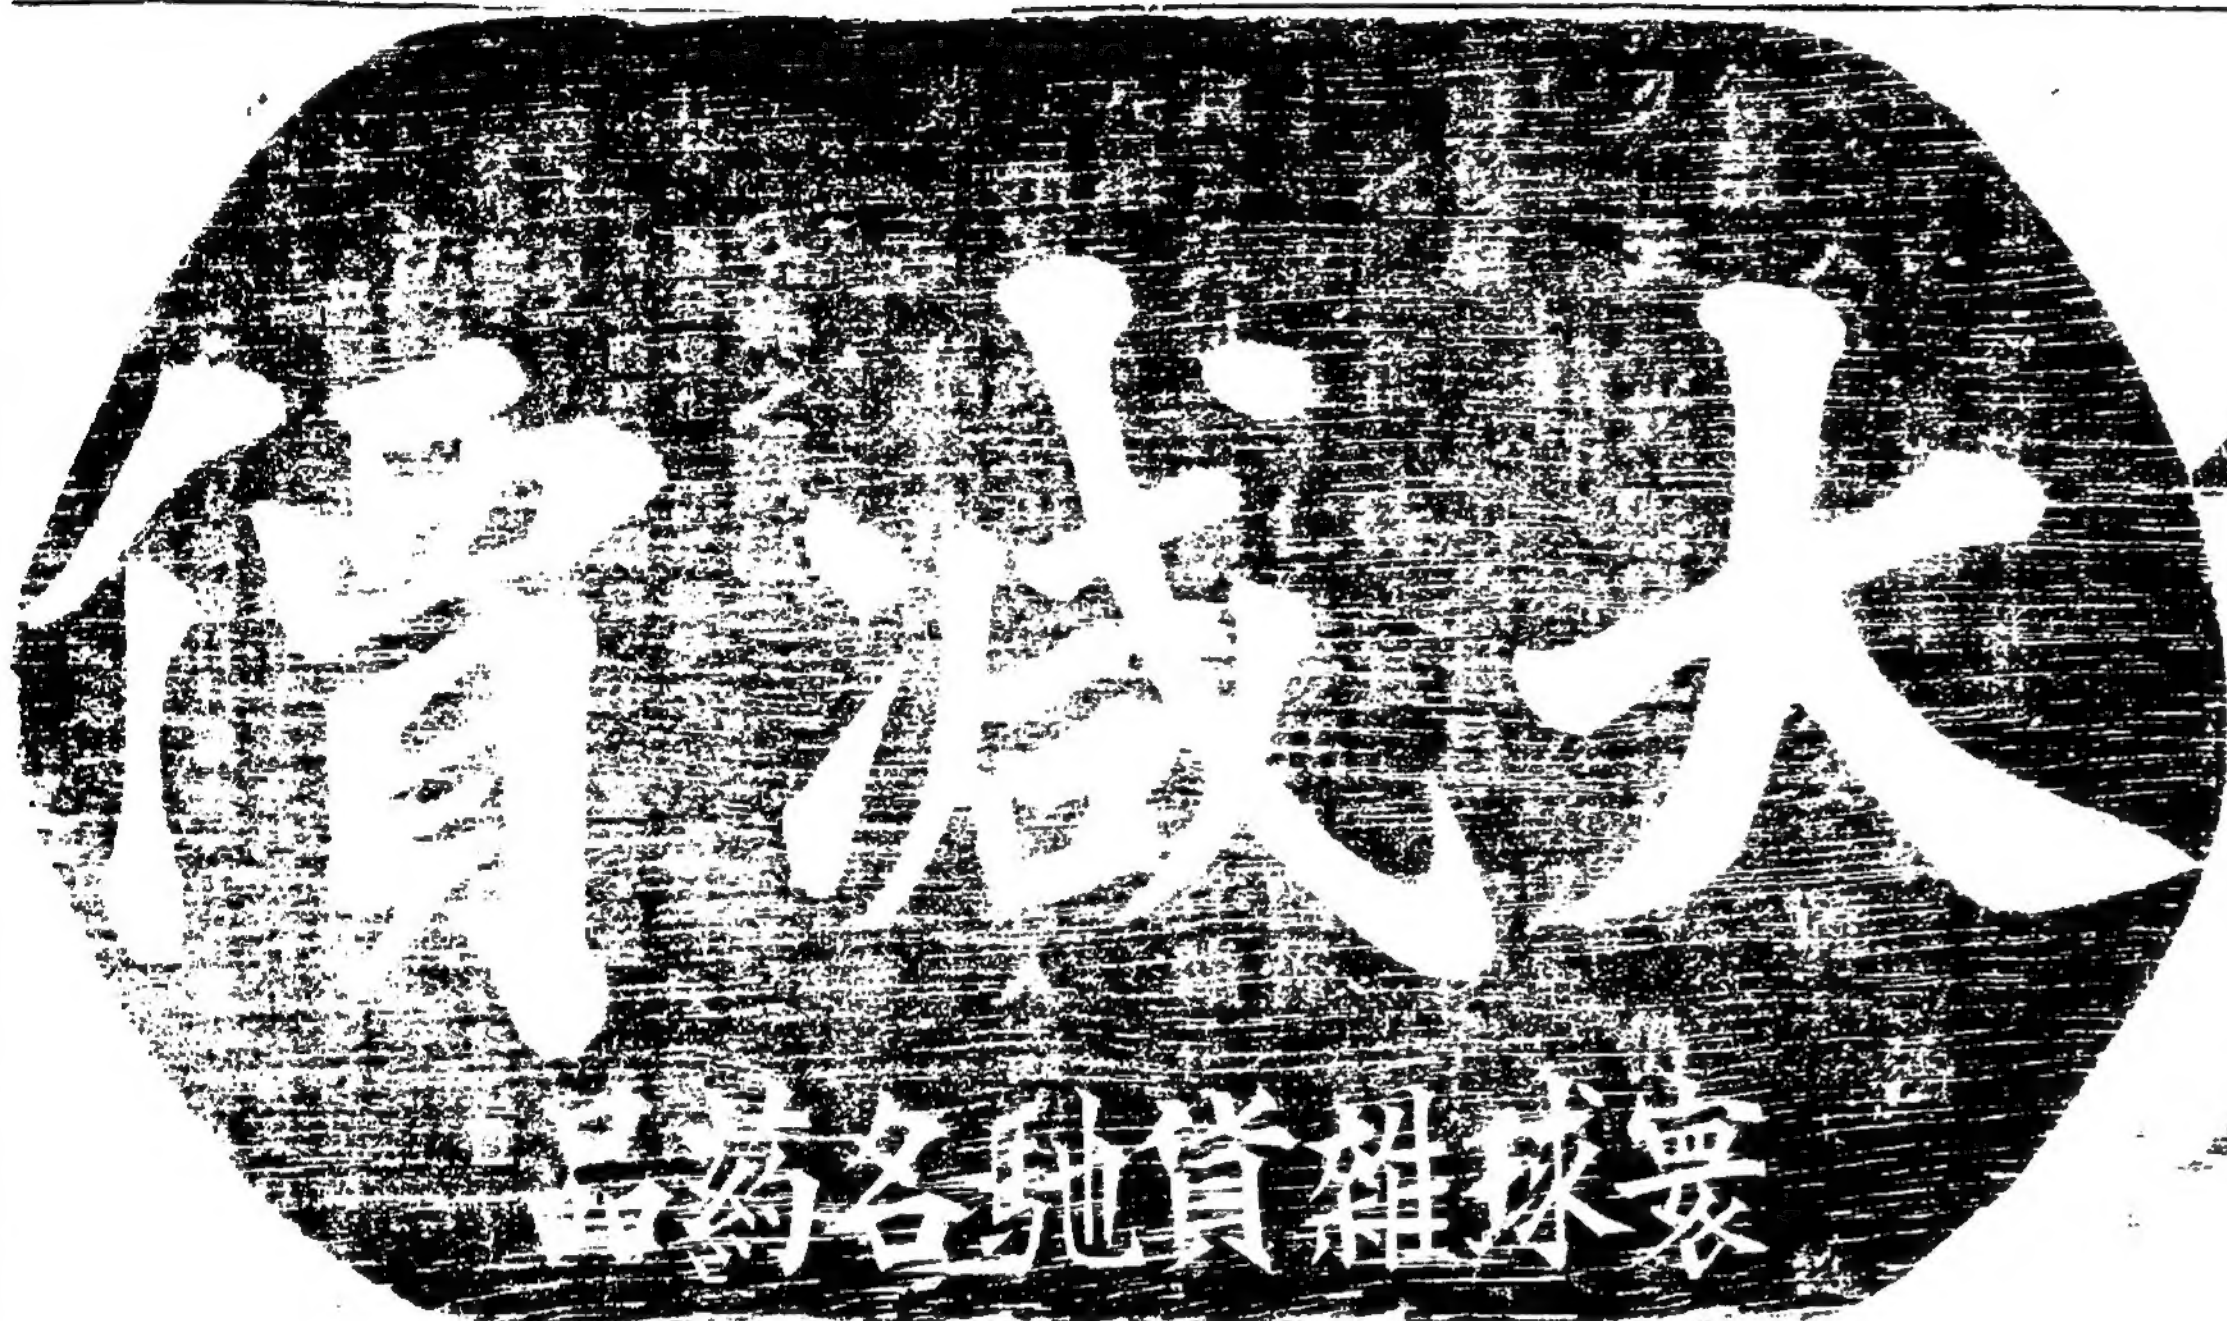 大減價
寰球雜貨馳名葯品